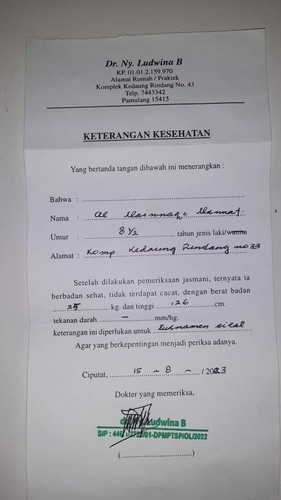 Dr. Ny. Ludwina B
KP. 01.01.2.159.970
Alamat Rumah / Praktek
Komplek Kedaung Rindang No. 43
Telp. 7443342
Pamulang 15415
KETERANGAN KESEHATAN
Yang bertanda tangan dibawah ini menerangkan :
Bahwa :
Nama : al
Umur : 8 1/2 tahun jenis laki/wanita
Alamat : Komp. Kedaung Rindang no 33
Setelah dilakukan pemeriksaan jasmani, ternyata ia
berbadan sehat, tidak terdapat cacat, dengan berat badan
25 kg. dan tinggi 126 cm.
tekanan darah — mm/hg.
keterangan ini diperlukan untuk : turnamen silat
Agar yang berkepentingan menjadi periksa adanya.
Ciputat, 15 - 8 - / 2023
Dokter yang memeriksa,
dr. Ludwina B
SIP : /01-DPMPTSP/OL/2022
(..............................)